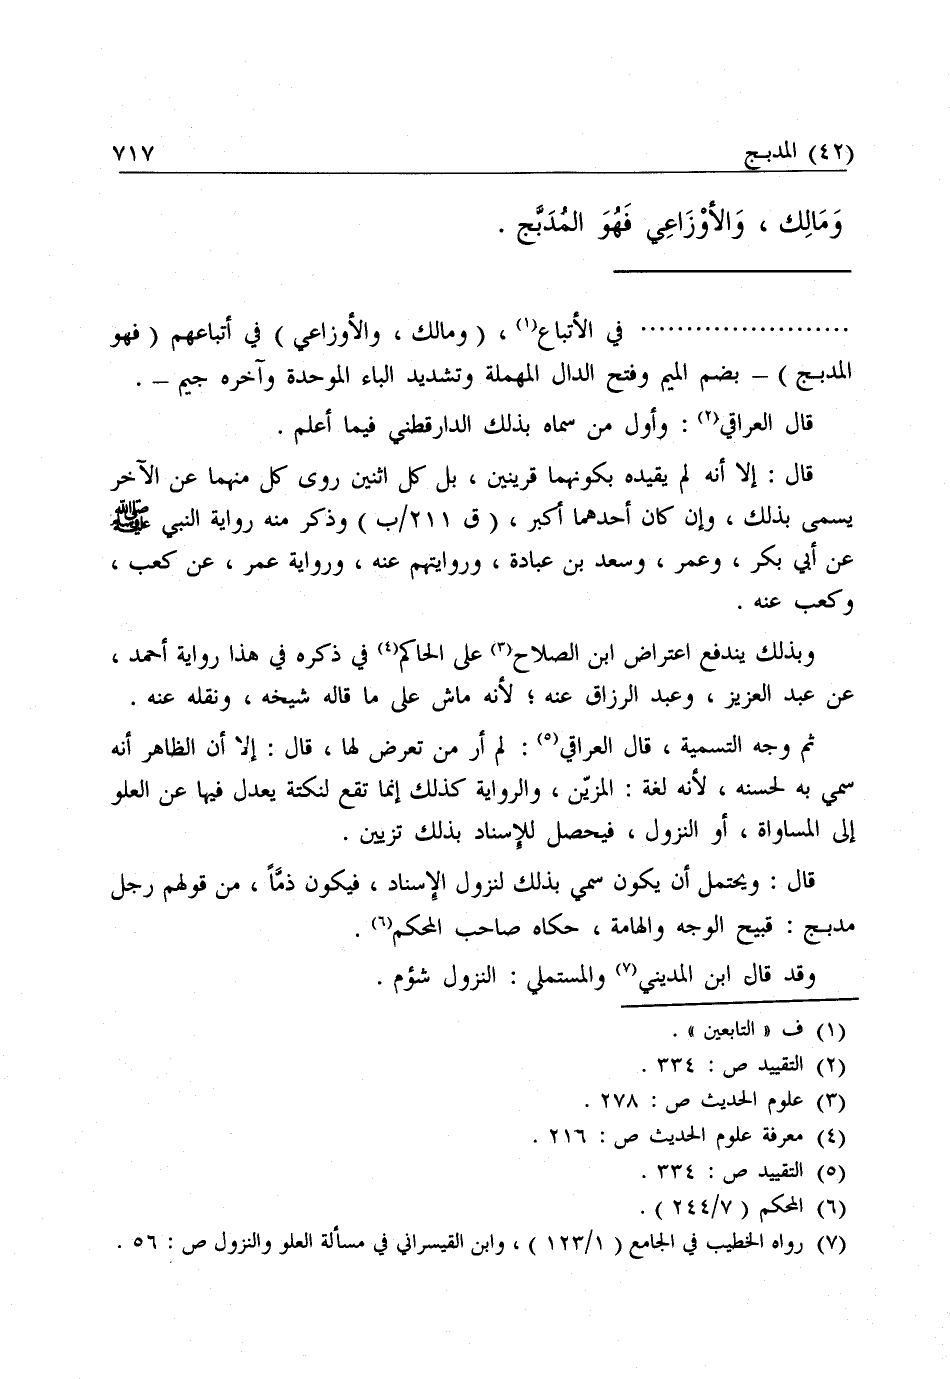 (٤٢) المدبج ٧١٧
وَمَالِك ، وَالأوْزَاعِي فَهُوَ المُدَبَّج .
....................... في الأتباع(١) ، ( ومالك ، والأوزاعي ) في أتباعهم ( فهو
المدبج ) – بضم الميم وفتح الدال المهملة وتشديد الباء الموحدة وآخره جيم – .
قال العراقي(٢) : وأول من سماه بذلك الدارقطني فيما أعلم .
قال : إلا أنه لم يقيده بكونهما قرينين ، بل كل اثنين روى كل منهما عن الآخر
يسمى بذلك ، وإن كان أحدهما أكبر ، ( ق ٢١١/ب ) وذكر منه رواية النبي ﷺ
عن أبي بكر ، وعمر ، وسعد بن عبادة ، وروايتهم عنه ، ورواية عمر ، عن كعب ،
وكعب عنه .
وبذلك يندفع اعتراض ابن الصلاح(٣) على الحاكم(٤) في ذكره في هذا رواية أحمد ،
عن عبد العزيز ، وعبد الرزاق عنه ؛ لأنه ماش على ما قاله شيخه ، ونقله عنه .
ثم وجه التسمية ، قال العراقي(٥) : لم أر من تعرض لها ، قال : إلا أن الظاهر أنه
سمي به لحسنه ، لأنه لغة : المزيّن ، والرواية كذلك إنما تقع لنكتة يعدل فيها عن العلو
إلى المساواة ، أو النزول ، فيحصل للإسناد بذلك تزيين .
قال : ويحتمل أن يكون سمي بذلك لنزول الإسناد ، فيكون ذمًّا ، من قولهم رجل
مدبج : قبيح الوجه والهامة ، حكاه صاحب المحكم(٦) .
وقد قال ابن المديني(٧) والمستملي : النزول شؤم .
(١) ف « التابعين » .
(٢) التقييد ص : ٣٣٤ .
(٣) علوم الحديث ص : ٢٧٨ .
(٤) معرفة علوم الحديث ص : ٢١٦ .
(٥) التقييد ص : ٣٣٤ .
(٦) المحكم ( ٢٤٤/٧ ) .
(٧) رواه الخطيب في الجامع ( ١٢٣/١ ) ، وابن القيسراني في مسألة العلو والنزول ص : ٥٦ .